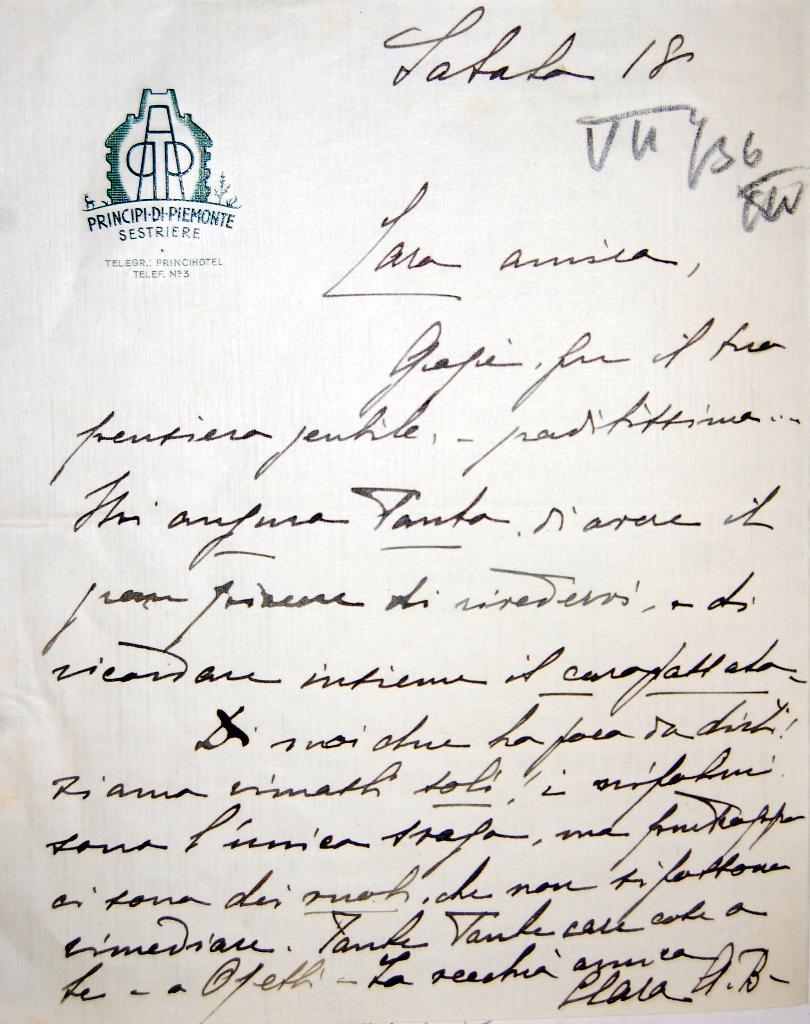 Sabato 18
VII 936
XIV
PRINCIPI·DI·PIEMONTE
SESTRIERE
TELEGR.: PRINCIHOTEL
TELEF. Nº3
Cara amica,
Grazie, per il tuo
pensiero gentile, - graditissimo...
Mi auguro Tanto, di avere il
gran piacere di rivedervi, e di
ricordare insieme il caro passato -
Di noi due ho poco da dirti!
siamo rimasti soli! i nipotini
sono l'unico svago, ma purtroppo
ci sono dei vuoti, che non si possono
rimediare. Tante Tante care cose a
te - a Ojetti - La vecchia amica
Clara A. B-